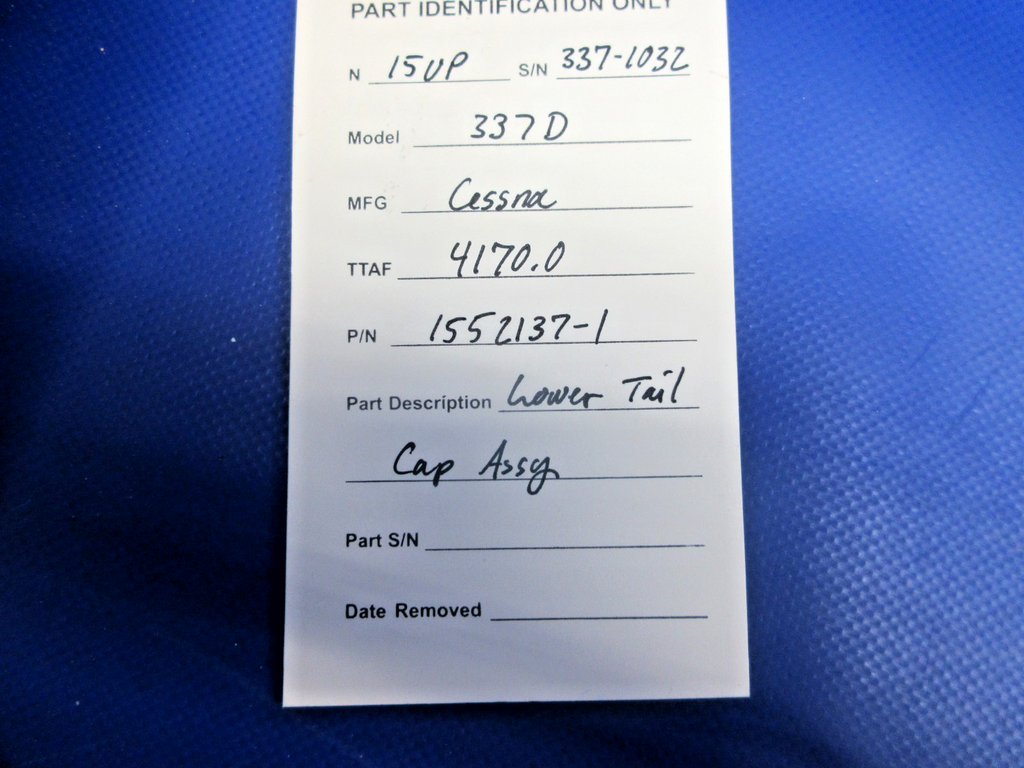 PART IDENTIFICATION ONLY
N 15UP S/N 337-1032
Model 337D
MFG Cessna
TTAF 4170.0
P/N 1552137-1
Part Description Lower Tail
Cap Assy
Part S/N
Date Removed